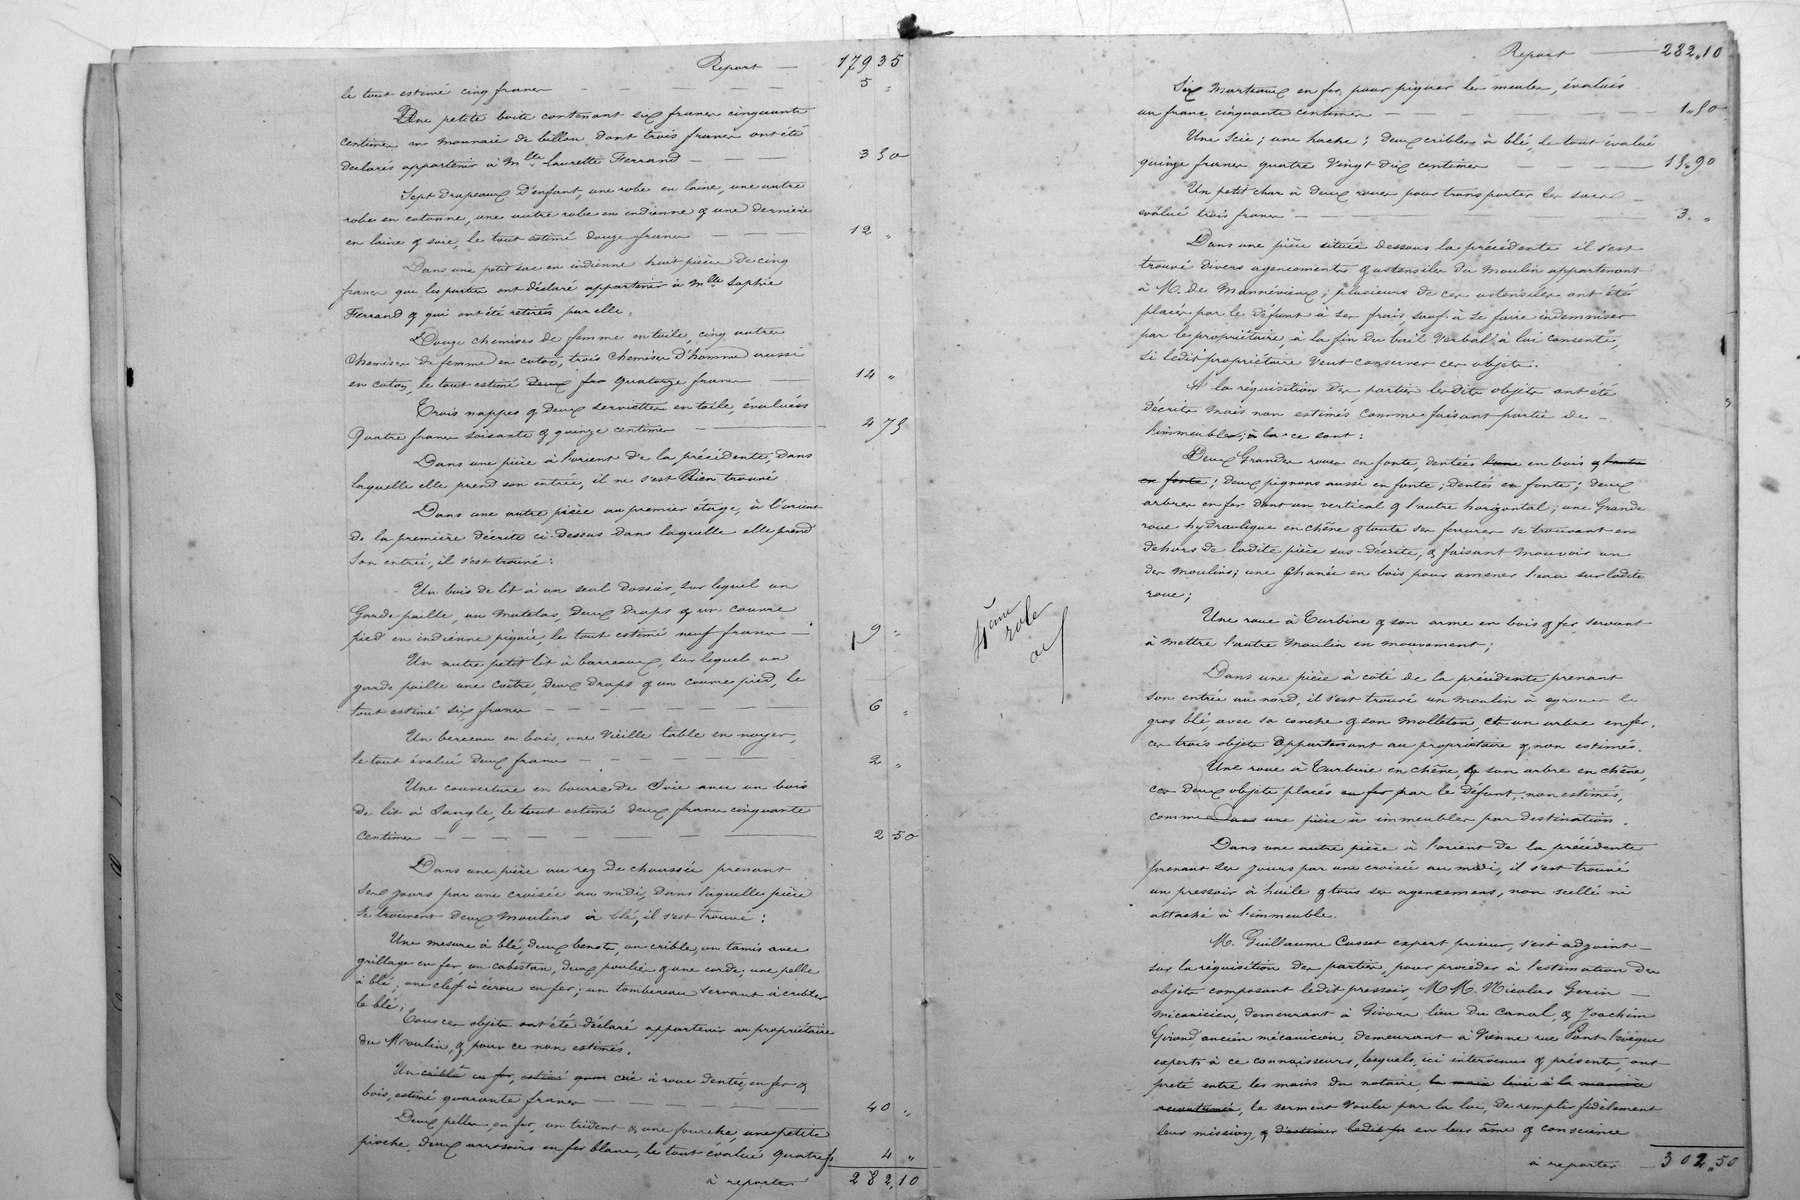 Report — 179 35
le tout estimé cinq francs — 5 "
Une petite boite contenant six francs cinquante
centimes en monnaie de billon dont trois francs ont été
déclarés appartenir à Mlle Laurette Ferrand — 3 50
Sept drapeaux d'enfant, une robe en laine, une autre
robe en cotonne, une autre robe en indienne & une dernière
en laine & soie, le tout estimé douze francs — 12 "
Dans une petit sac en indienne huit pièces de cinq
francs que les parties ont déclaré appartenir à Mlle Sophie
Ferrand & qui ont été retirées par elle.
Douze chemises de femme en toile, cinq autres
chemises de femme en coton, trois chemises d'homme aussi
en coton, le tout estimé deux fra quatorze francs — 14 "
Trois nappes & deux serviettes en toile, évaluées
quatre francs soixante & quinze centimes — 4 75
Dans une pièce à l'orient de la précédente, dans
laquelle elle prend son entrée, il ne s'est rien trouvé.
Dans une autre pièce au premier étage, à l'orient
de la première décrite ci-dessus dans laquelle elle prend
son entrée, il s'est trouvé :
Un bois de lit à un seul dossier, sur lequel un
garde paille, un matelas, deux draps & un couvre
pied en indienne piquée, le tout estimé neuf francs — 9 "
Un autre petit lit à barreaux, sur lequel un
garde paille une coitre, deux draps & un couvre pied, le
tout estimé six francs — 6 "
Un berceau en bois, une vieille table en noyer,
le tout évalué deux francs — 2 "
Une couverture en bourre de soie avec un bois
de lit à sangle, le tout estimé deux francs cinquante
centimes — 2 50
Dans une pièce au rez de chaussée prenant
ses jours par une croisée au midi, dans laquelle pièce
se trouvent deux moulins à blé, il s'est trouvé :
Une mesure à blé, deux benots, un crible, un tamis avec
grillage en fer, un cabestan, deux poulies & une corde; une pelle
à blé; une clef à écrou en fer; un tombereau servant à cribler
le blé;
Tous ces objets ont été déclaré appartenir au propriétaire
du Moulin, & pour ce non estimés.
Un en fer, estimé cric à roue dentée en fer &
bois, estimé quarante francs — 40 "
Deux pelles en fer, un trident & une fourche, une petite
pioche, deux arrosoirs en fer blanc, le tout évalué quatre f. 4 "
à reporter 282,10
4eme role
Report — 282,10
Six marteaux en fer, pour piquer les meules, évalués
un franc cinquante centimes — 1,50
Une scie; une hache; deux cribles à blé, le tout évalué
quinze francs quatre vingt dix centimes — 15,90
Un petit char à deux roues pour transporter les sacs
évalué trois francs — 3. "
Dans une pièce située dessous la précédente il s'est
trouvé divers agencements & ustensiles du moulin appartenant
à M. de Mannévieux; plusieurs de ces ustensiles ont été
placés par le défunt à ses frais sauf à se faire indemniser
par le propriétaire, à la fin du bail verbal à lui consenti,
si ledit propriétaire veut conserver ces objets.
A la réquisition des parties lesdits objets ont été
décrits mais non estimés comme faisant partie de
l'immeuble; ce sont :
Deux grandes roues en fonte, dentées l'une en bois & l'autre
en fonte; deux pignons aussi en fonte; dentés en fonte; deux
arbres en fer dont un vertical & l'autre horizontal; une grande
roue hydraulique en chêne & toute ses ferrures se trouvant en
dehors de ladite pièce sus-décrite, & faisant mouvoir un
des moulins; une chanée en bois pour amener l'eau sur ladite
roue;
Une roue à Turbine & son arme en bois & fer, servant
à mettre l'autre moulin en mouvement;
Dans une pièce à coté de la précédente prenant
son entrée au nord, il s'est trouvé un moulin à égruer le
gros blé, avec sa conche & son molleton, un arbre en fer.
ces trois objets appartenant au propriétaire & non estimés.
Une roue à Turbine en chêne, & son arbre en chêne,
ces deux objets placés en fer par le défunt, non estimés,
comme Dans une pièce à immeubles par destination.
Dans une autre pièce à l'orient de la précédente
prenant ses jours par une croisée au midi, il s'est trouvé
un pressoir à huile & tous ses agencemens, non scellé ni
attaché à l'immeuble.
M. Guillaume Cusset expert priseur, s'est adjoint
sur la réquisition des parties, pour procéder à l'estimation des
objets composant ledit pressoir, MM. Nicolas Gerin
mécanicien, demeurant à Givors lieu du Canal, & Joachim
Girond ancien mécanicien, demeurant à Vienne rue Pont-l'évêque
experts à ce connaisseurs, lesquels, ici intervenus & présents, ont
prêté entre les mains du notaire, la main levée à la manière
accoutumée, le serment voulu par la loi, de remplir fidèlement
leur mission, & d'estimer ledit en leur âme & conscience
à reporter — 302,50